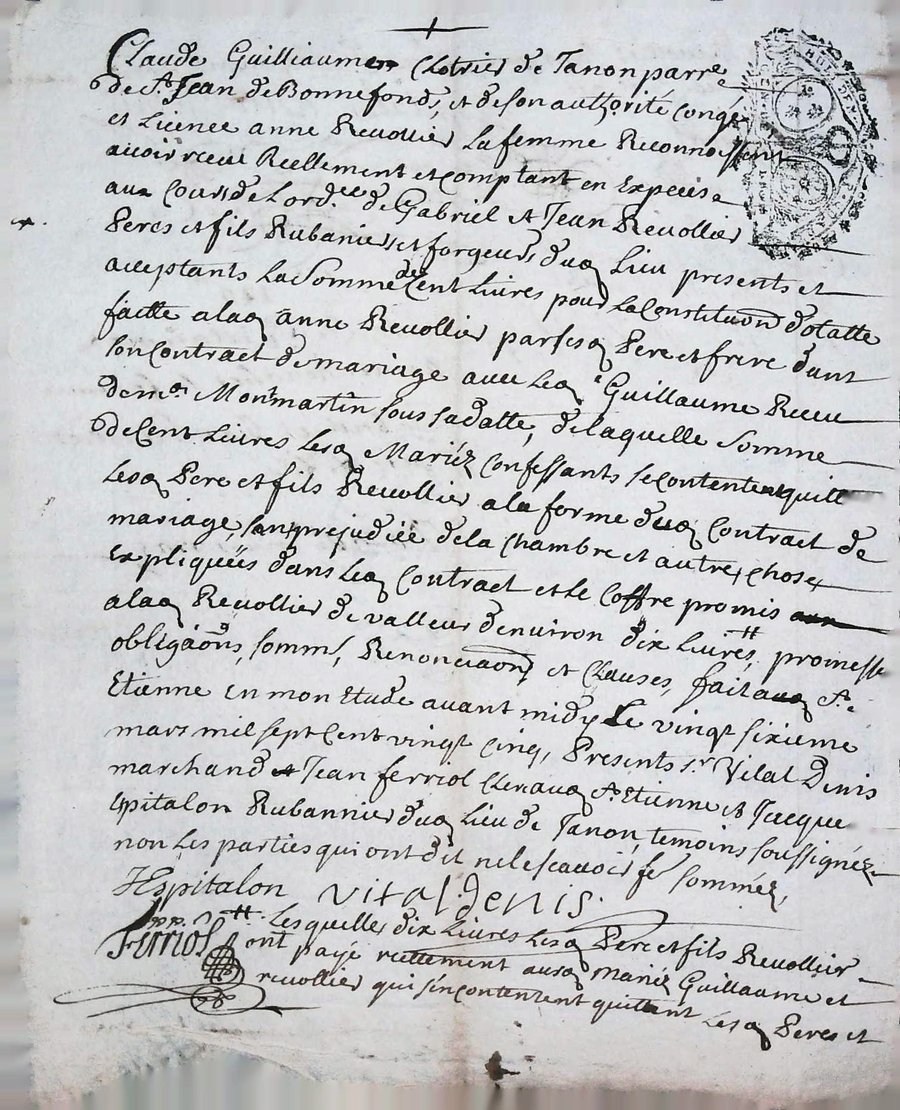 Claude Guilliaumen Clotrier de Janon parre
de St Jean de Bonnefond, et de son authorité congé
et Licence anne Revollier La femme Reconnoissent
avoir receu Reellement et comptant en Expeése
aux Cours de Lord.ce de Gabriel et Jean Revollier
Peres et fils Rubaniers et forgeurs duq Lieu presents et
acceptants La Somme de Cent Livres pour La Constitution dotalle
faitte a laq anne Revollier par sesq Pere et frere dant
son Contract de mariage avec Leq Guillaume Receu
de me Monmartin sous sa datte, de laquelle Somme
de Cent Livres Lesq Mariéz Confessants se contentent quitt
Lesq Pere et fils Revollier a la forme duq Contract de
mariage, sans prejudiée de la Chambre et autres choses
Expliqueés dans Leq Contract et Le Coffre promis
a laq Revollier de valleur denviron dix Livres tt, promesse
obligaons, somms, Renonciaons, et Clauses, fait auq St
Etienne En mon Etude avant midy Le vingt sixieme
mars mil sept Cent vingt Cinq, Presents sr Vital Denis
marchand et Jean ferriol Clerc auq St Etienne et Jacque
spitalon Rubannier duq Lieu de Janon, temoins soussignéz
non Les parties qui ont dit ne le scavoir fe sommér,
Hspitalon vital denis.
Ferriol pp. tt. Lesquelles dix Livres Lesq Pere et fils Revollier
ont payé reellement auxq Mariéz Guillaume et
revollier qui sen contentent quittant Lesq Peres et